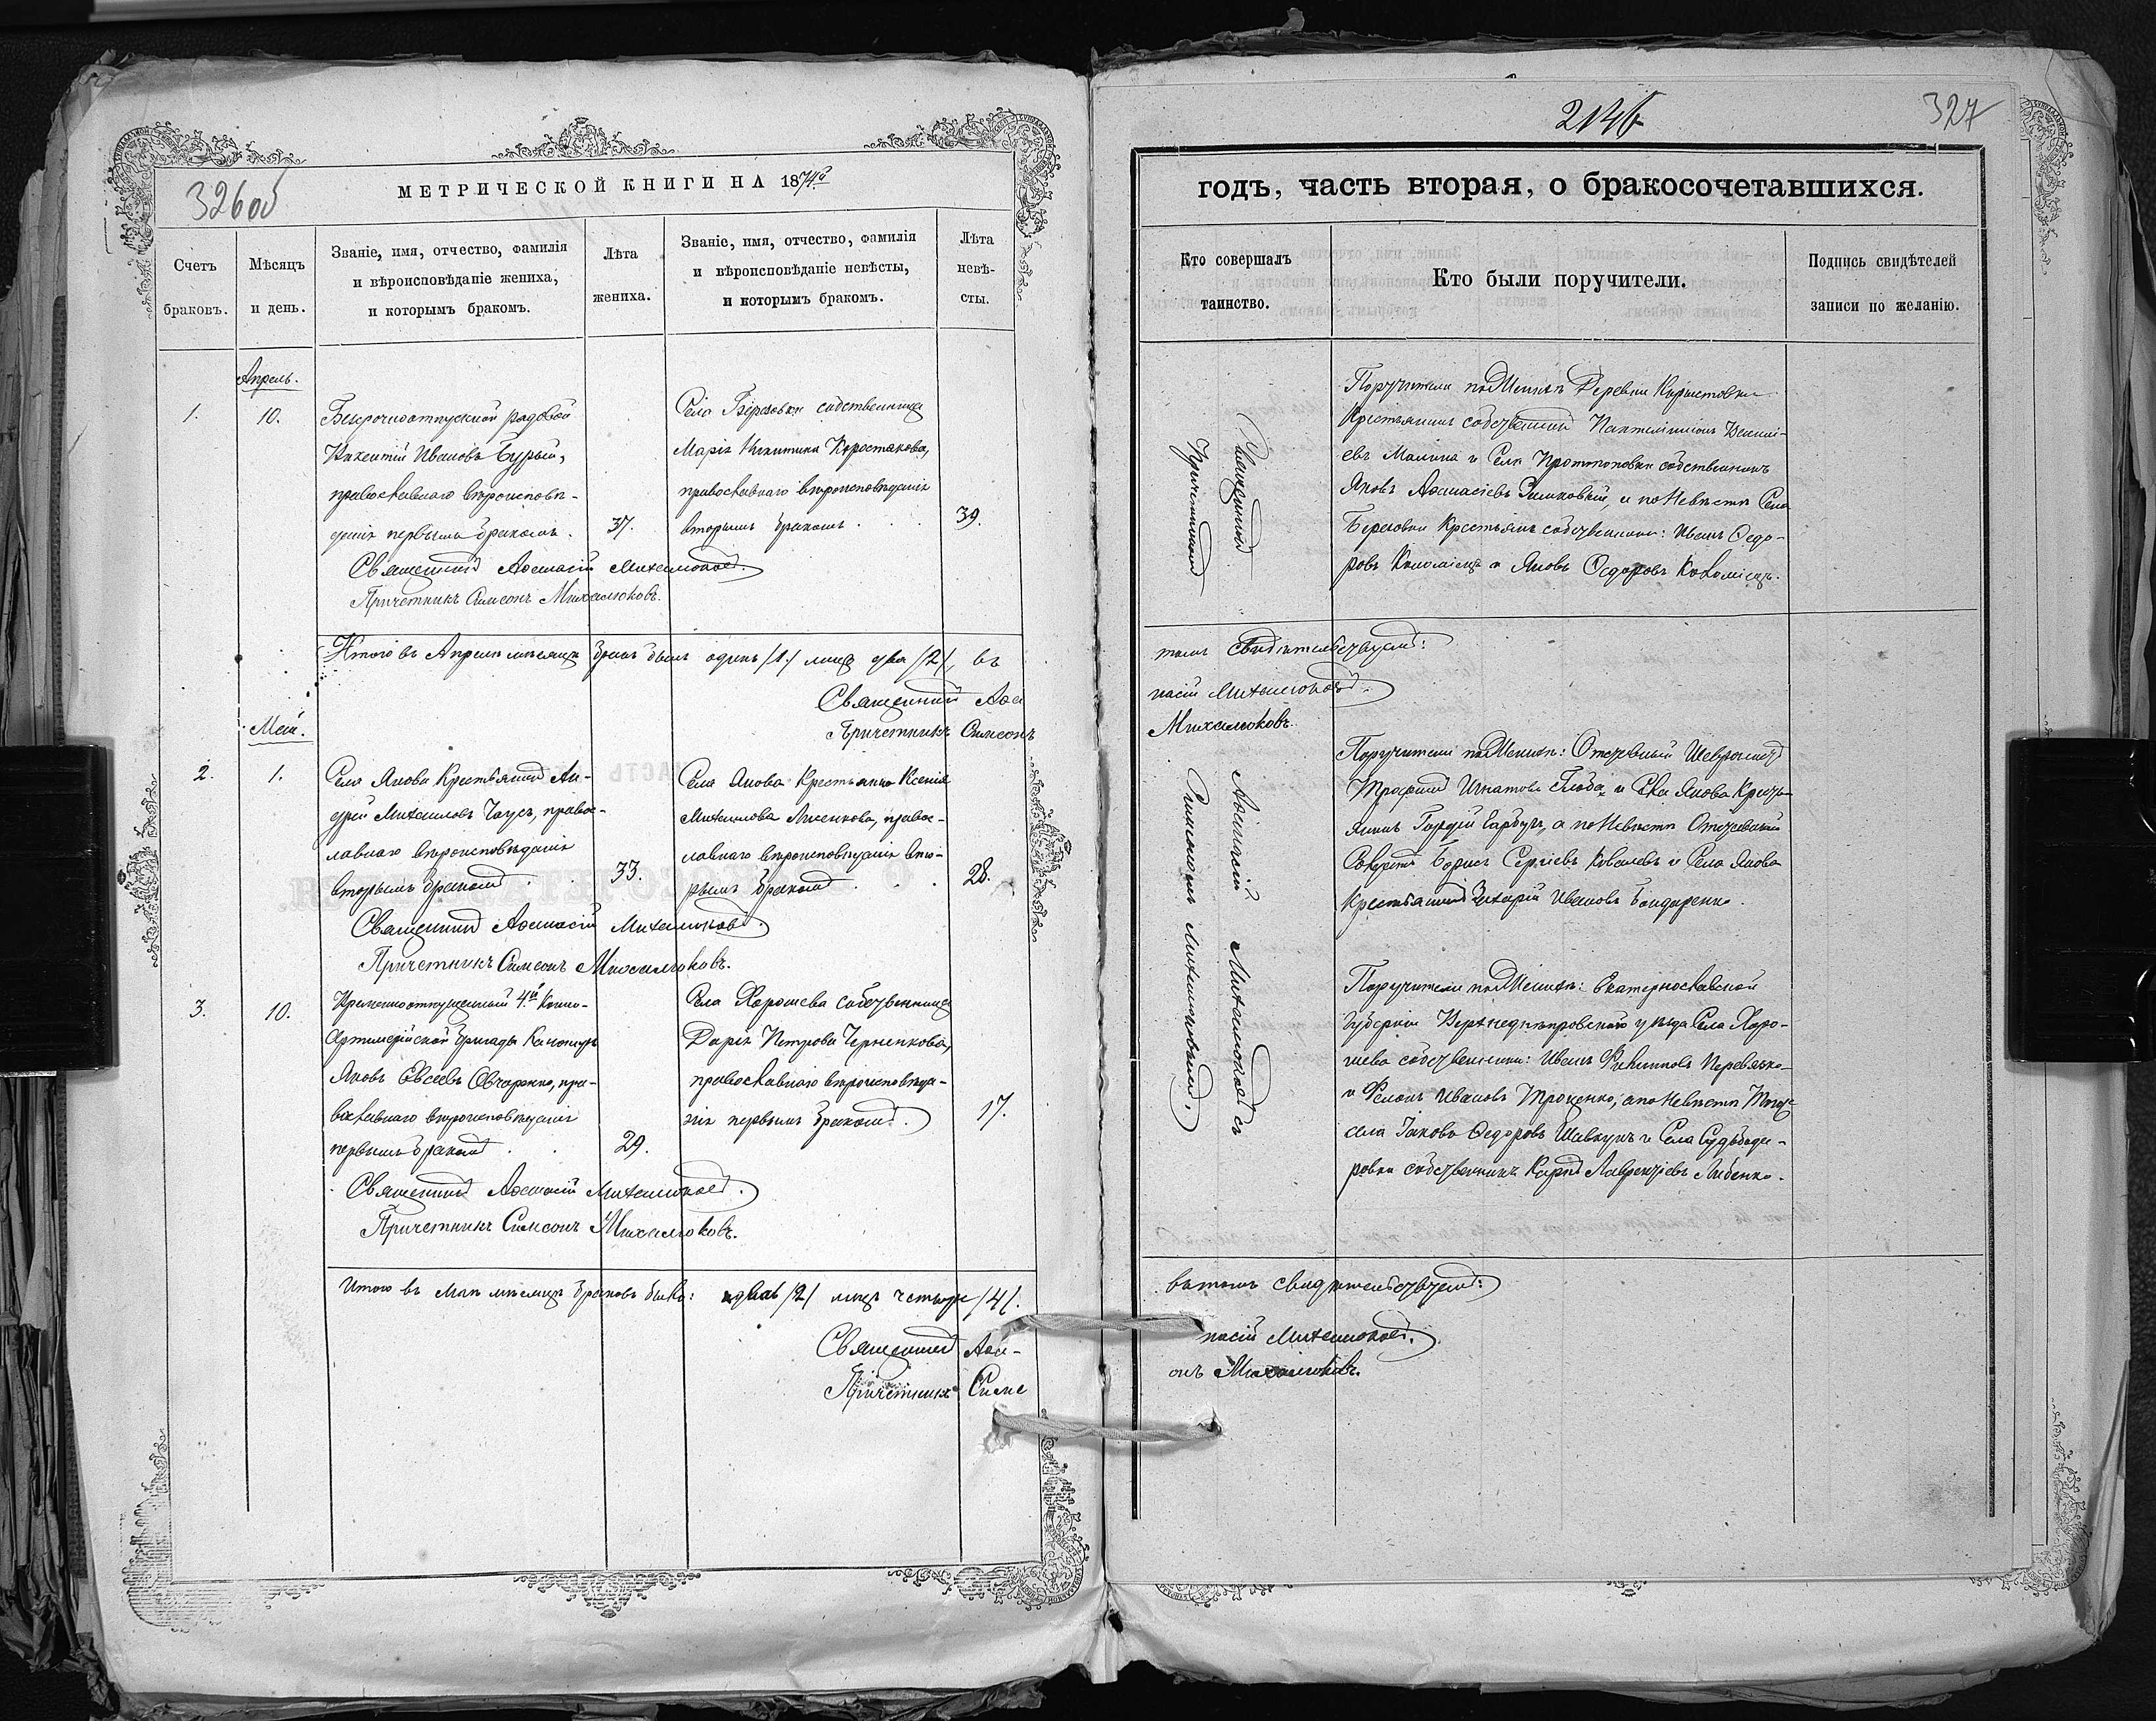 326об
МЕТРИЧЕСКОЙ КНИГИ НА 1874й
Счетъ браковъ.
Мѣсяцъ и день.
Званіе, имя, отчество, фамилія
и вѣроисповѣданіе жениха,
и которымъ бракомъ.
Лѣта жениха.
Званіе, имя, отчество, фамилія
и вѣроисповѣданіе невѣсты,
и которымъ бракомъ.
Лѣта невѣ-
сты.
Апрель.
1.
10.
Безсрочноотпускной рядовой
Иванова Бурый,
православнаго вѣроисповѣ-
данія первымъ бракомъ.
37.
Села Березовки собственница
Марія Никитина Коростакова,
православнаго вѣроисповѣданія
вторымъ бракомъ
39.
Священникъ Аѳанасій Михалюковъ.
Причетникъ Симеонъ Михалюковъ.
Итого въ Апрелѣ мѣсяцѣ бракъ былъ одинъ /1./ лицъ два /2/, въ
Священникъ Аѳа
Причетникъ Симеонъ
Май.
2.
1.
Села Якова Крестьянинъ Ан-
дрей Михаиловъ Чаусъ, правос-
лавнаго вѣроисповѣданія
вторымъ бракомъ
33.
Села Якова Крестьянка Ксенія
Михаилова Лисенкова, правос-
лавнаго вѣроисповѣданія вто-
рымъ бракомъ
28.
Священникъ Аѳанасій Михалюковъ.
Причетникъ Симеонъ Михалюковъ.
3.
10.
Временноотпущенный 4й Конно-
Артилерійской бригады Канониръ
Яковъ Евсеевъ Овчаренко, пра-
вославнаго вѣроисповѣданія
первымъ бракомъ
29.
Села Хорошева собственница
Дарія Петрова Черненкова,
православнаго вѣроисповѣда-
нія первымъ бракомъ.
17.
Священникъ Аѳанасій Михалюковъ.
Причетникъ Симеонъ Михалюковъ.
Итого въ Маѣ мѣсяцѣ браковъ было: два /2/ лицъ четыре /4/.
Священникъ Аѳа-
Причетникъ Симе
327
годъ, часть вторая, о бракосочетавшихся.
Кто совершалъ таинство.
Кто были поручители.
Подпись свидѣтелей
записи по желанію.
Священникъ Аѳанасій Михалюковъ съ
Причетникомъ Симеономъ Михалюковымъ.
Поручители по Женихѣ Деревни
Крестьянинъ собственникъ Пантелимонъ Василі-
евъ Малина и Села Протопоповки собственникъ
Яковъ Аѳанасіевъ и по Невѣстѣ Села
Березовки Крестьяне собственники: Иванъ Ѳедо-
ровъ Коломіецъ и Яковъ Ѳедоровъ Коломіецъ.
томъ свидѣтельствуемъ:
насій Михалюковъ.
Михалюковъ.
Поручители по Женихѣ: Отставный
Трофимъ Игнатовъ Глоба, и Села Якова Кресть-
янинъ Гордій Гарбузъ, а по Невѣстѣ Отставный
Борисъ Сергіевъ Ковалевъ и Села Якова
Крестьянинъ Захарій Ивановъ Бондаренко.
Поручители по Женихѣ: Екатеринославской
Губерніи Верхнеднѣпровскаго уѣзда Села Хоро-
шева собственники: Иванъ Филиповъ Перевязко
и Ивановъ Троценко, а по Невѣстѣ Того же
села Іаковъ Ѳедоровъ Шевкунъ и Села
ровки собственникъ Карпъ Лаврентіевъ Либенко.
въ томъ свидѣтельствуемъ:
насій Михалюковъ.
онъ Михалюковъ.